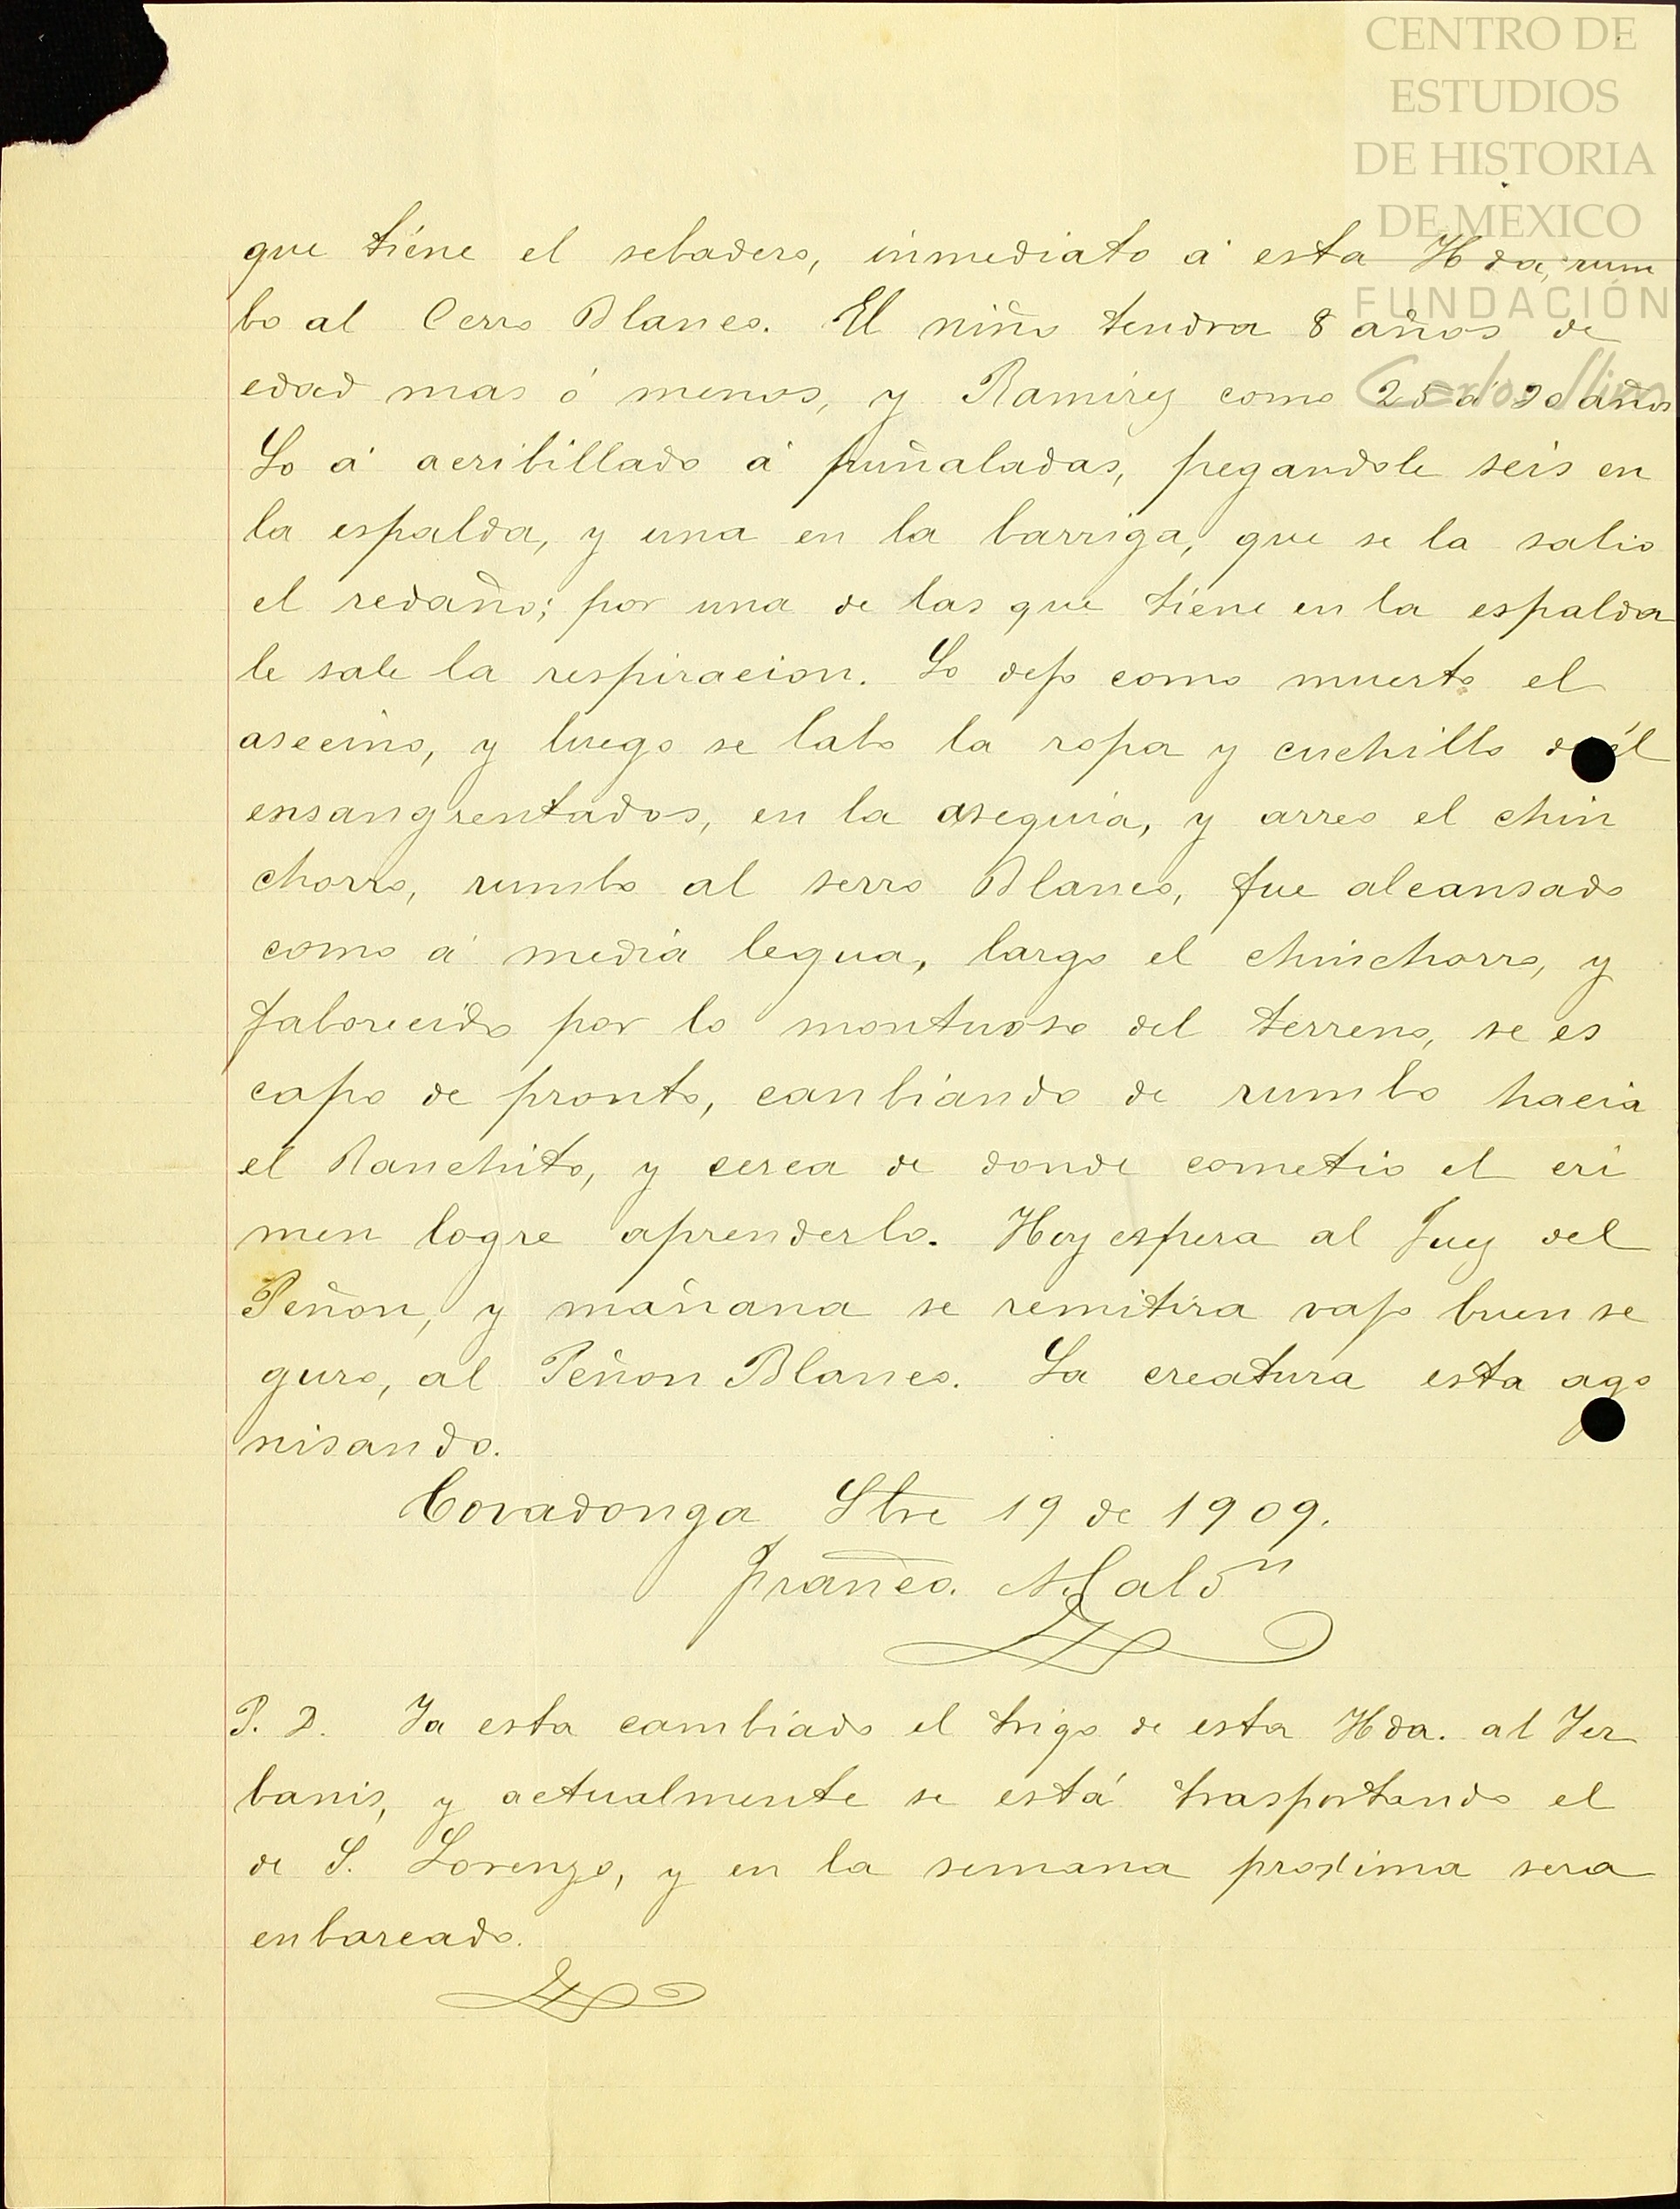 CENTRO DE
ESTUDIOS
DE HISTORIA
DE MÉXICO
FUNDACIÓN
Carlos Slim
que tiéne el sebadero, inmediato á esta Hda, rum
bo al Cerro Blanco. El niño tendra 8 años de
edad mas ó menos, y Ramirez como 25 á 30 años
Lo á acribillado á puñaladas, pegandole seis en
la espalda, y una en la barriga, que se la salio
el redaño; por una de las que tiene en la espalda
le sale la respiracion. Lo dejo como muerto el
asecino, y luego se labo la ropa y cuchillo de él
ensangrentados, en la asequia, y arreo el chin
chorro, rumbo al serro Blanco, fue alcansado
como á media legua, largo el chinchorro, y
faborecido por lo montuoso del terreno, se es
capo de pronto, canbiando de rumbo hacia
el Ranchito, y cerca de donde cometio el cri
men logre aprenderlo. Hoy espera al Juez del
Peñon, y mañana se remitira vajo buen se
guro, al Peñon Blanco. La creatura esta ago
nisando.
Covadonga Stre 19 de 1909.
Franco. Maldn
P. D. Ya esta cambiado el trigo de esta Hda. al Yer
banis, y actualmente se está trasportando el
de S. Lorenzo, y en la semana proxima sera
enbarcado.